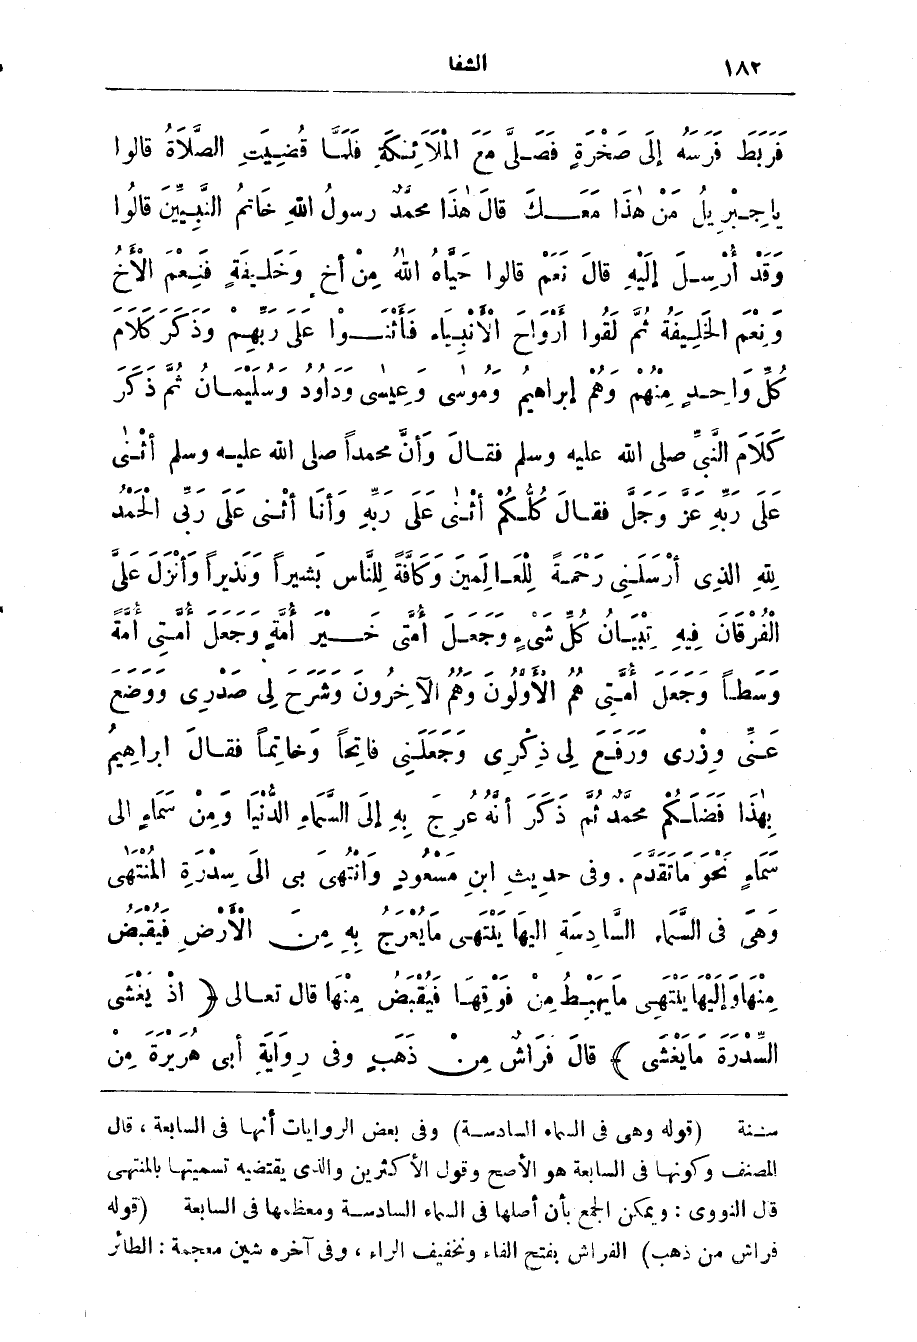 ١٨٢ الشفا
فَرَبَطَ فَرَسَهُ إلَى صَخْرَةٍ فَصَلَّى مَعَ الْمَلَائِكَةِ فَلَمَّا قُضِيَتِ الصَّلَاةُ قالوا
ياجِبْرِيلُ مَنْ هٰذَا مَعَكَ قالَ هٰذَا محمدٌ رسولُ اللهِ خَاتِمُ النَّبِيِّينَ قالُوا
وَقَدْ أُرْسِلَ إلَيْهِ قالَ نَعَمْ قالوا حَيَّاهُ اللهُ مِنْ أخٍ وَخَلِيفَةٍ فَنِعْمَ الْأخُ
وَنِعْمَ الخَلِيفَةُ ثُمَّ لَقُوا أرْوَاحَ الْأنْبِيَاء فَأثْنَوْا عَلَى رَبِّهِمْ وَذَكَرَ كَلَامَ
كُلِّ وَاحِدٍ مِنْهُمْ وَهُمْ إبراهيمُ وَمُوسَى وَعِيسَى وَدَاوُدُ وَسُلَيْمَانُ ثُمَّ ذَكَرَ
كَلَامَ النَّبِيِّ صلى الله عليه وسلم فقالَ وَأنَّ محمداً صلى الله عليه وسلم أثْنَى
عَلَى رَبِّهِ عَزَّ وَجَلَّ فقالَ كُلُّكُمْ أثْنَى عَلَى رَبِّهِ وَأنَا أثْنِى عَلَى رَبِّى الْحَمْدُ
لِلهِ الذِى أرْسَلَنِى رَحْمَةً لِلْعَالَمِينَ وَكَافَّةً لِلنَّاس بَشيراً وَنَذيراً وَأنْزَلَ عَلَىَّ
الفُرْقَانَ فِيهِ تِبْيَانُ كُلِّ شَىْءٍ وَجَعَلَ أُمَّتِى خَيْرَ أُمَّةٍ وَجَعَلَ أُمَّتِى أُمَّةً
وَسَطاً وَجَعَلَ أُمَّتِى هُمُ الْأَوَّلُونَ وَهُمُ الآخِرُونَ وَشَرَحَ لِى صَدْرِى وَوَضَعَ
عَنِّى وِزْرِى وَرَفَعَ لِى ذِكْرِى وَجَعَلَنِى فاتِحاً وَخاتِماً فقالَ ابراهِيمُ
بِهٰذَا فَضَلَكُمْ محمدٌ ثُمَّ ذَكَرَ أنَّهُ عُرِجَ بِهِ إلَى السَّمَاءِ الدُّنْيَا وَمِنْ سَمَاءٍ الى
سَمَاءٍ نَحْوَ مَا تَقَدَّمَ . وفى حديثِ ابنِ مَسْعُودٍ وَانْتُهِىَ بى الَى سِدْرَةِ المُنْتَهٰى
وَهِىَ فى السَّمَاء السَّادِسَةِ اليها يَنْتَهِى مَا يُعْرَجُ بِهِ مِنَ الأرْضِ فَيُقْبَضُ
مِنْهَا وَإلَيْهَا يَنْتَهِى مَا يَهْبِطُ مِنْ فَوْقِهَا فَيُقْبَضُ مِنْهَا قال تعالى ﴿ اذْ يَغْشَى
السِّدْرَةَ مَا يَغْشَى ﴾ قالَ فَرَاشٌ مِنْ ذَهَبٍ وفى رِوَايَةِ أبى هُرَيْرَةَ مِنْ
سنة (قوله وهى فى السماء السادسة) وفى بعض الروايات أنها فى السابعة ، قال
المصنف وكونها فى السابعة هو الأصح وقول الأكثرين والذى يقتضيه تسميتها بالمنتهى
قال النووى : ويمكن الجمع بأن أصلها فى السماء السادسة ومعظمها فى السابعة (قوله
فراش من ذهب) الفراش بفتح الفاء وتخفيف الراء ، وفى آخره شين معجمة : الطائر